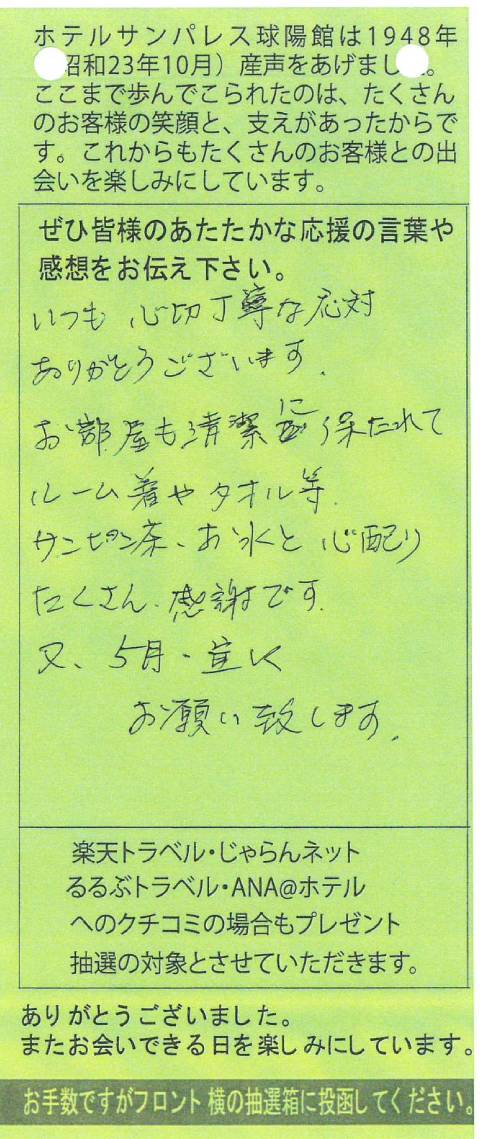 ホテルサンパレス球陽館は1948年
昭和23年10月）産声をあげまし。
ここまで歩んでこられたのは、たくさん
のお客様の笑顔と、支えがあったからで
す。これからもたくさんのお客様との出
会いを楽しみにしています。
ぜひ皆様のあたたかな応援の言葉や
感想をお伝え下さい。
いつも 心切丁寧な応対
ありがとうございます.
お部屋も清潔に保たれて
ルーム着やタオル等.
サンピン茶、お水と 心配り
たくさん、感謝です.
又、5月・宜しく
お願い致します.
楽天トラベル・じゃらんネット
るるぶトラベル・ANA@ホテル
へのクチコミの場合もプレゼント
抽選の対象とさせていただきます。
ありがとうございました。
またお会いできる日を楽しみにしています。
お手数ですがフロント横の抽選箱に投函してください。